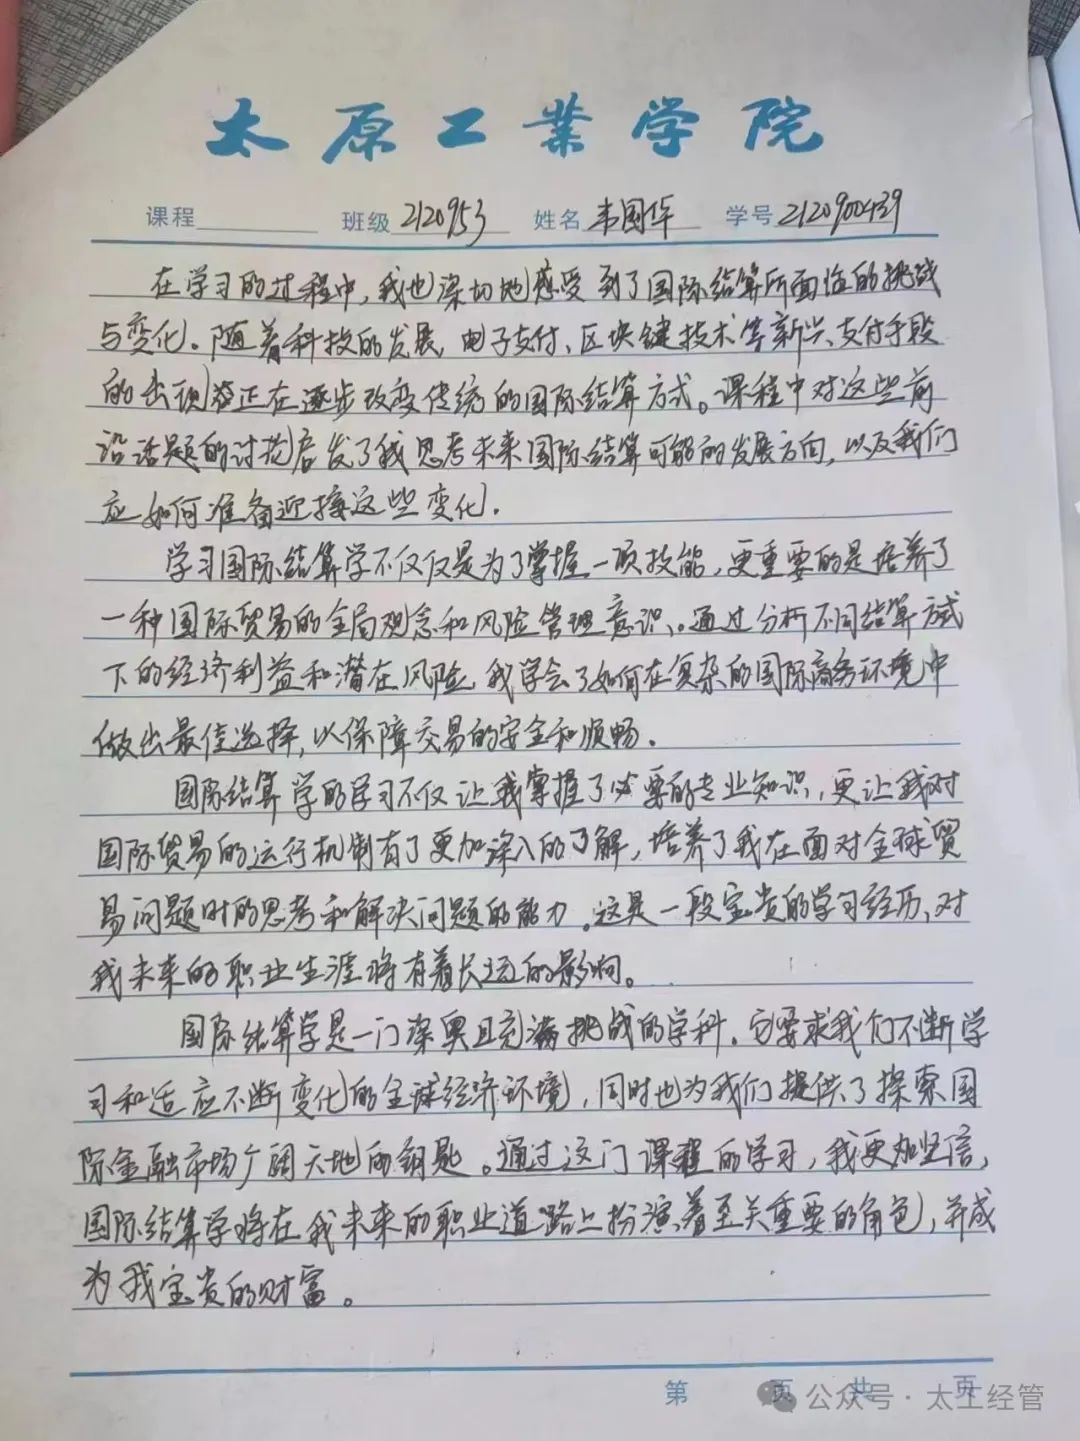 太原工業学院
课程 班级 2120953 姓名 韦国华 学号 2120900439
在学习的过程中,我也深切地感受到了国际结算所面临的挑战
与变化。随着科技的发展,电子支付、区块键技术等新兴支付手段
的出现正在逐步改变传统的国际结算方式。课程中对这些前
沿话题的讨论启发了我思考未来国际结算可能的发展方向,以及我们
应如何准备迎接这些变化.
学习国际结算学不仅仅是为了掌握一项技能,更重要的是培养了
一种国际贸易的全局观念和风险管理意识。通过分析不同结算方式
下的经济利益和潜在风险,我学会了如何在复杂的国际商务环境中
做出最佳选择,以保障交易的安全和顺畅.
国际结算学的学习不仅让我掌握了必要的专业知识,更让我对
国际贸易的运行机制有了更加深入的了解,培养了我在面对全球贸
易问题时的思考和解决问题的能力.这是一段宝贵的学习经历,对
我未来的职业生涯将有着长远的影响。
国际结算学是一门深奥且充满挑战的学科.它要求我们不断学
习和适应不断变化的全球经济环境,同时也为我们提供了探索国
际金融市场广阔天地的钥匙。通过这门课程的学习,我更加坚信,
国际结算学将在我未来的职业道路上扮演着至关重要的角色,并成
为我宝贵的财富。
第 页 共 页
公众号·太工经管